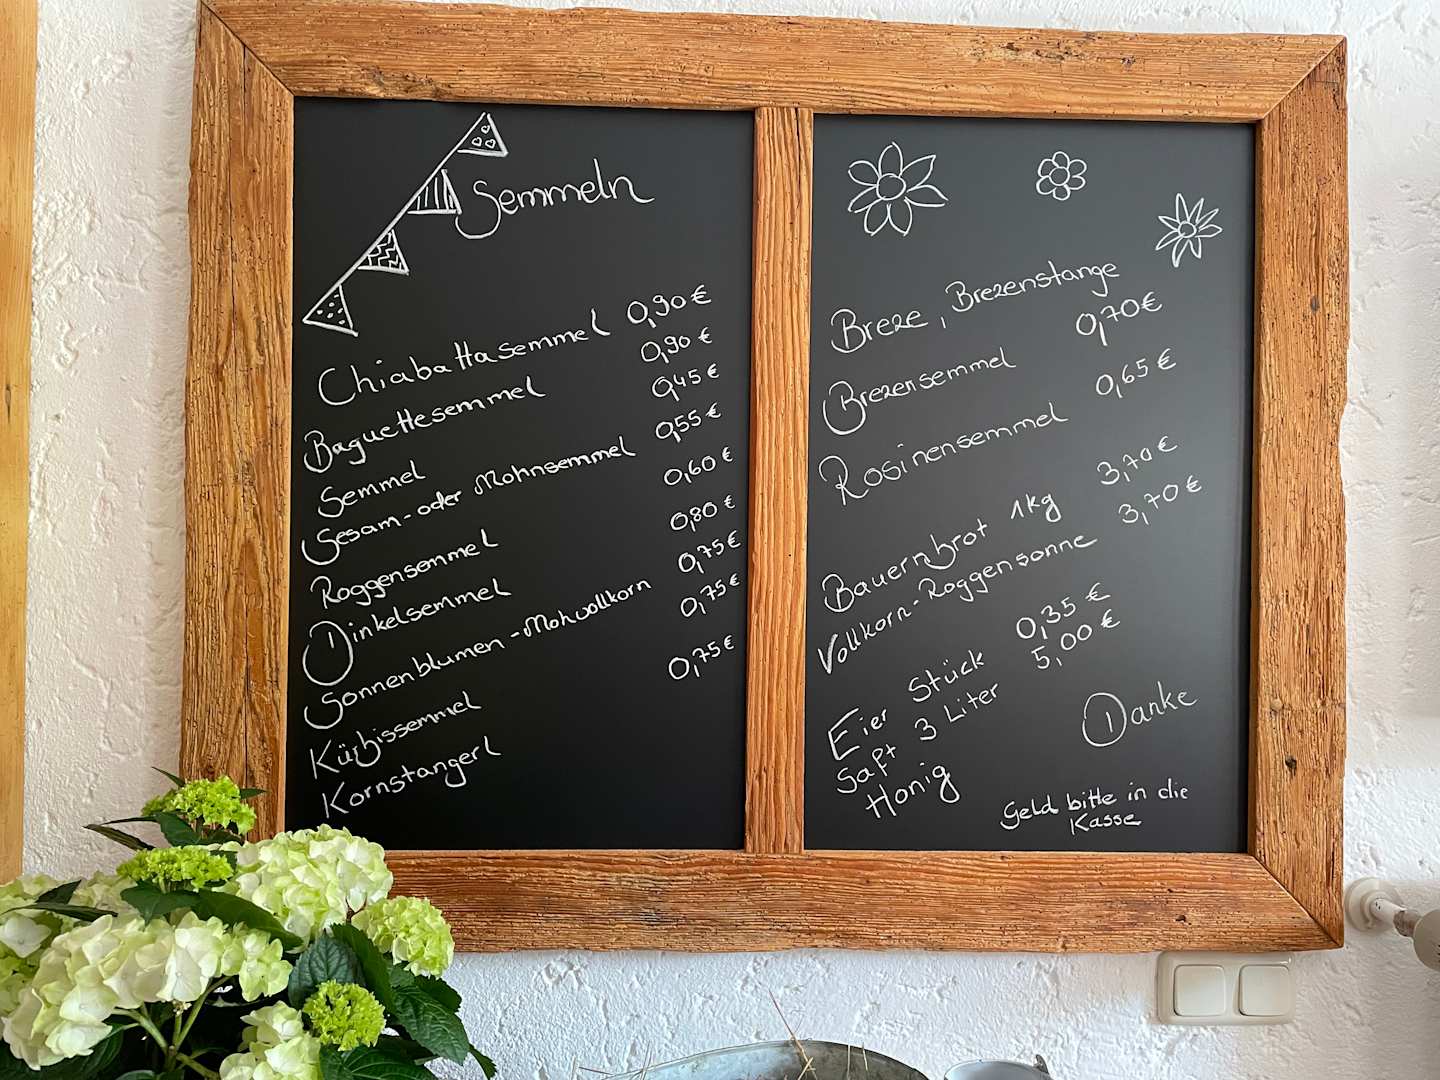 Semmeln
Chiabattasemmel 0,90 €
Baguettesemmel 0,90 €
Semmel 0,45 €
Sesam- oder Mohnsemmel 0,55 €
Roggensemmel 0,60 €
Dinkelsemmel 0,80 €
Sonnenblumen-Mohvollkorn 0,75 €
Kürbissemmel 0,75 €
Kornstangerl 0,75 €
Breze, Brezenstange
Brezensemmel 0,70 €
Rosinensemmel 0,65 €
Bauernbrot 1kg 3,70 €
Vollkorn-Roggensonne 3,70 €
Eier Stück 0,35 €
Saft 3 Liter 5,00 €
Honig
Danke
Geld bitte in die
Kasse